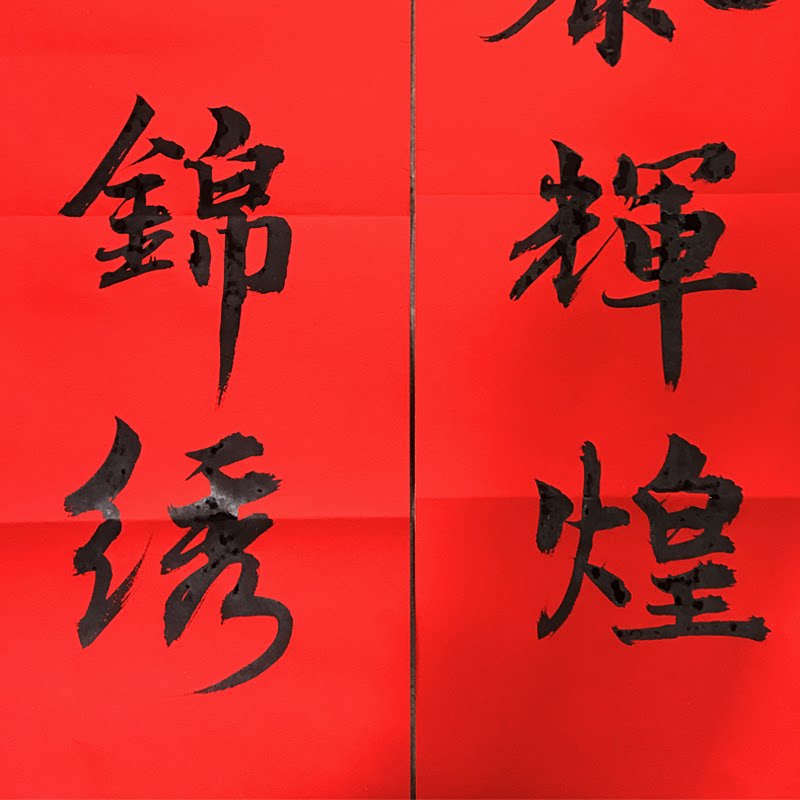 輝煌
錦绣